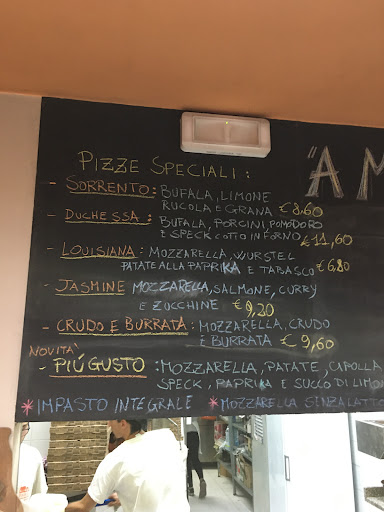 PIZZE SPECIALI:
"AM
- SORRENTO: BUFALA, LIMONE
RUCOLA E GRANA € 8,60
- DUCHESSA: BUFALA, PORCINI, POMODORO
E SPECK COTTO IN FORNO € 11,60
- LOUISIANA: MOZZARELLA, WURSTEL
PATATE ALLA PAPRIKA E TABASCO € 6,80
- JASMINE MOZZARELLA, SALMONE, CURRY
E ZUCCHINE € 9,20
- CRUDO E BURRATA: MOZZARELLA, CRUDO
E BURRATA € 9,60
NOVITA'
- PIÚ GUSTO: MOZZARELLA, PATATE, CIPOLLA
SPECK, PAPRIKA E SUCCO DI LIMO
* IMPASTO INTEGRALE * MOZZARELLA SENZA LATTO